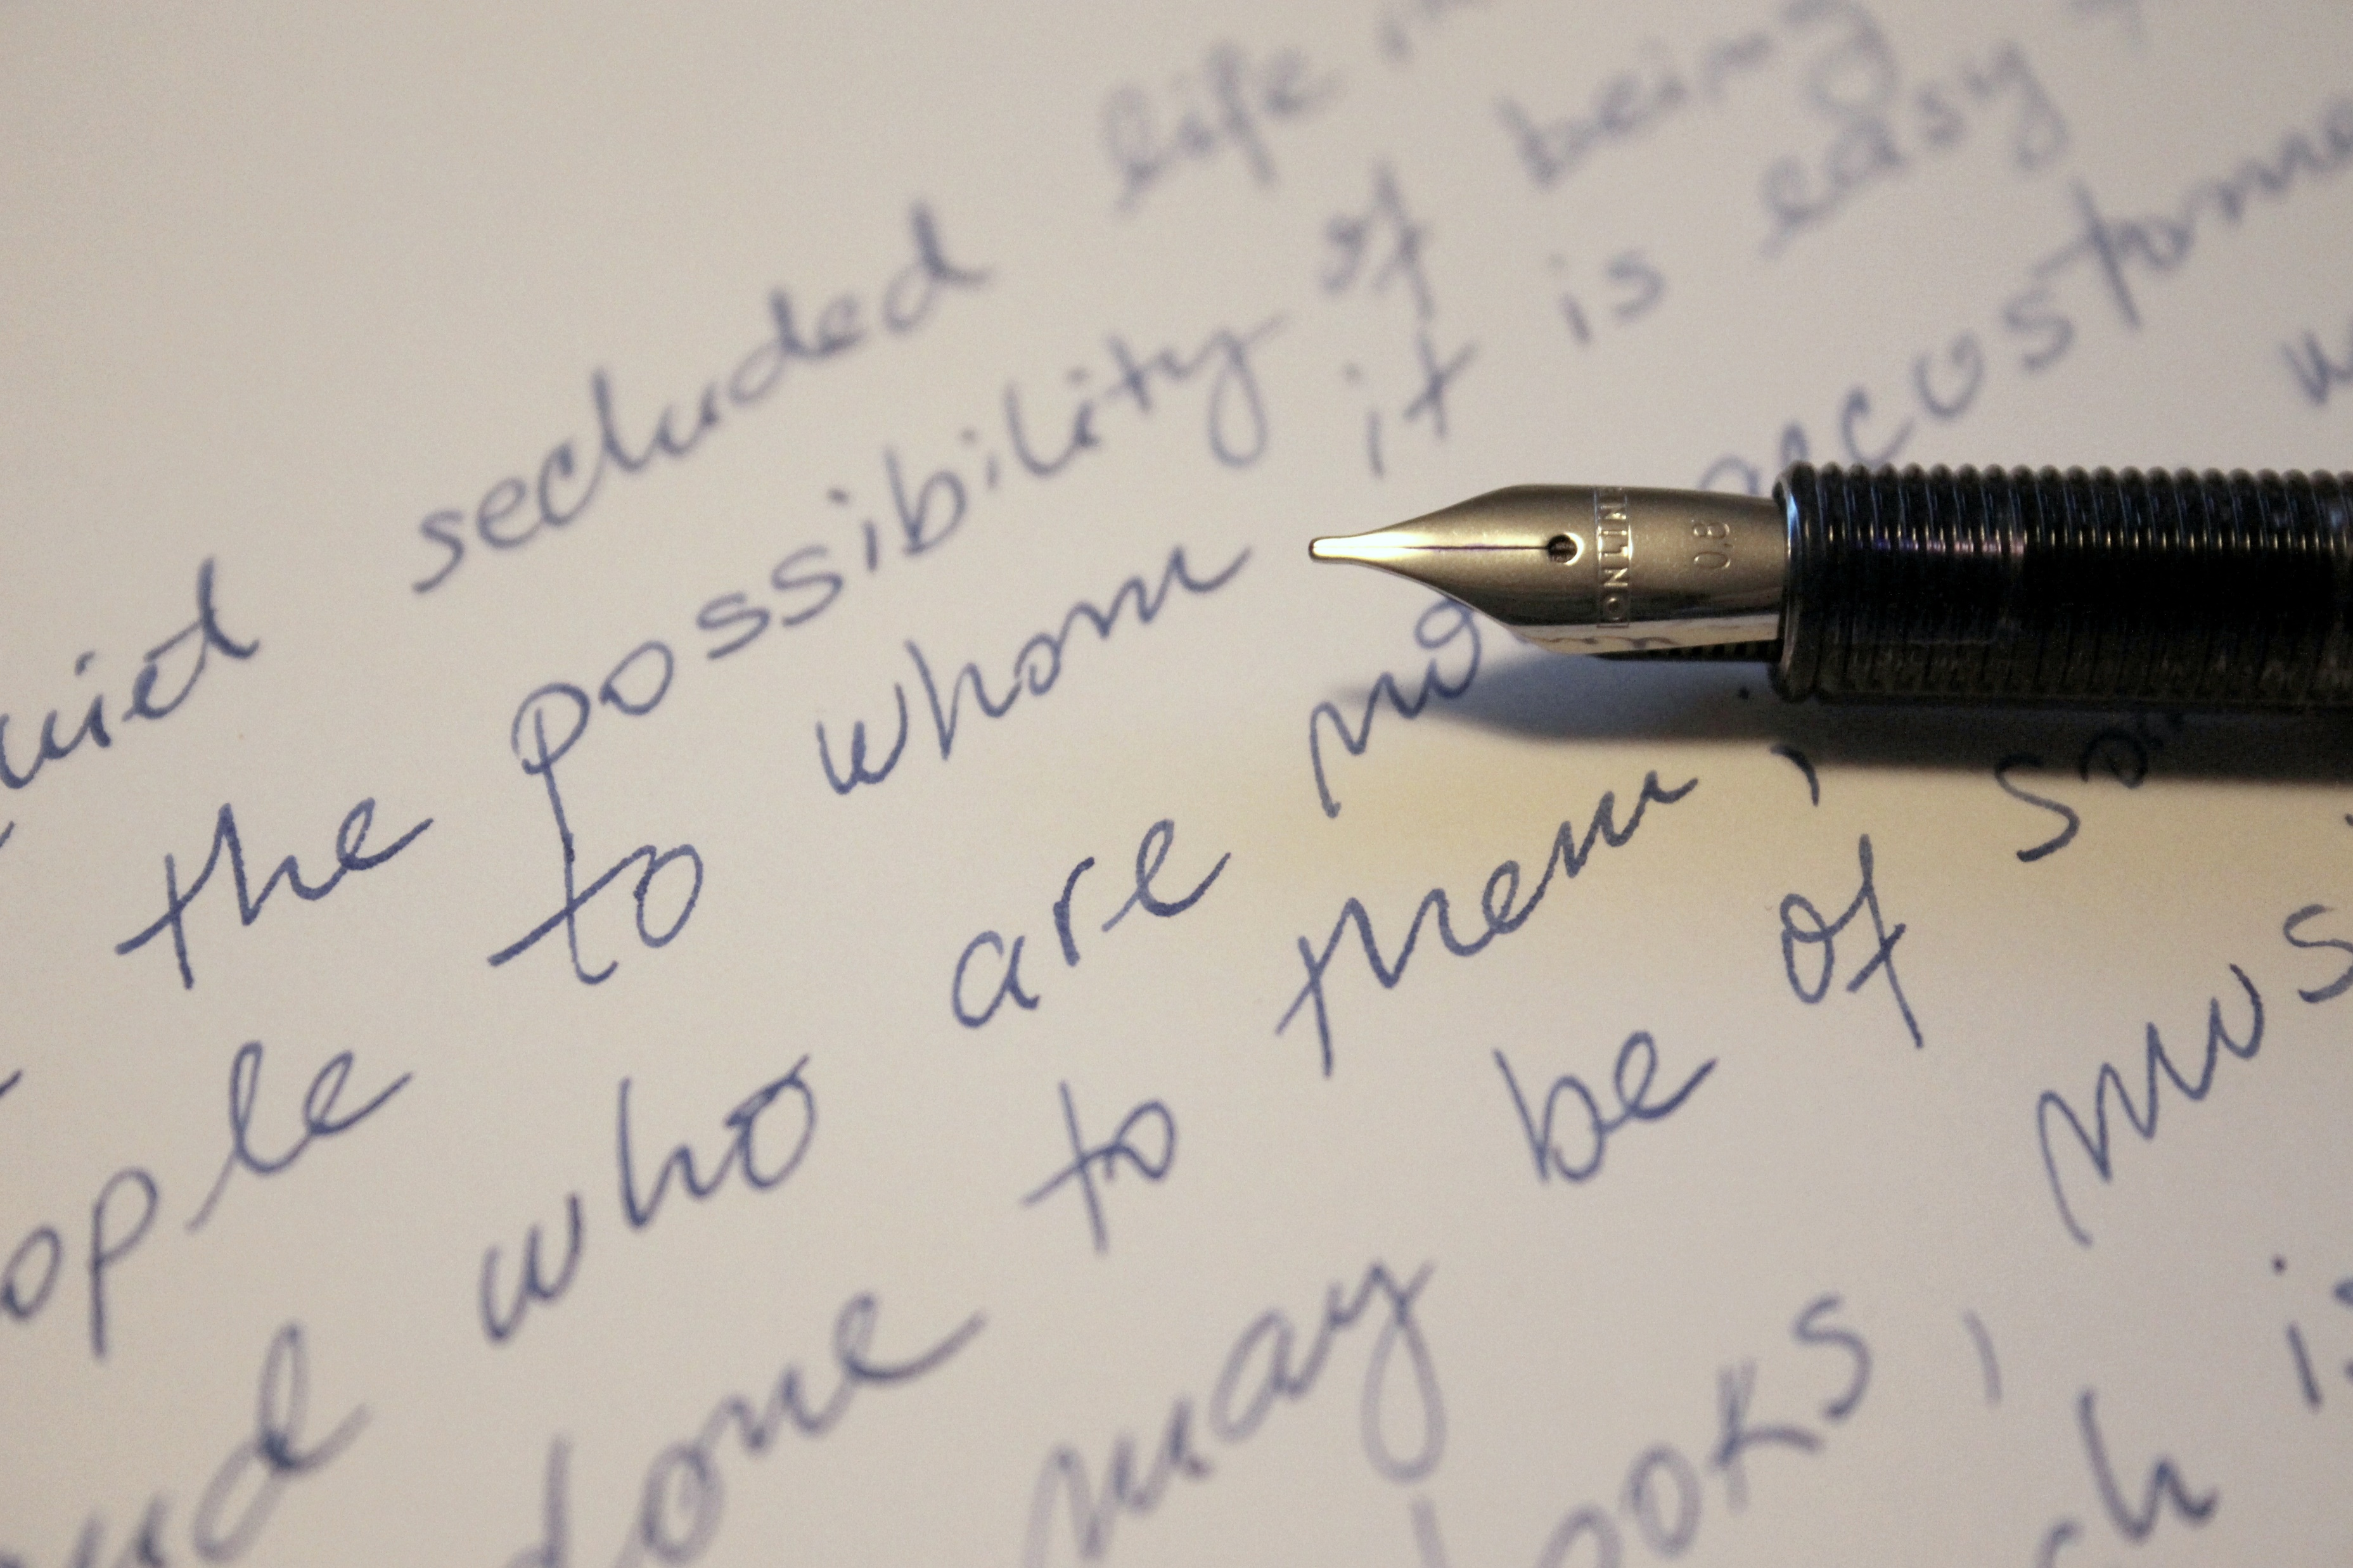 uiet secluded life in
the possibility of being
ople to whom it is easy
ud who are no accustome
done to them, w
may be of som
ooks, mus
ch is
ONLIN
0,8